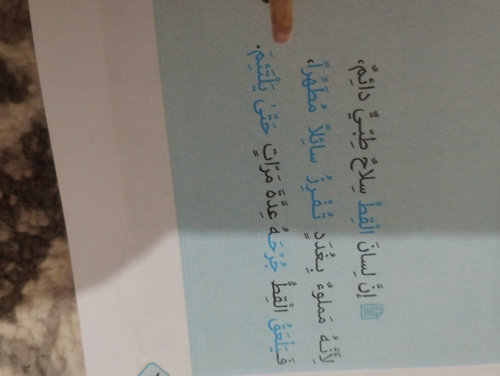 إنَّ لِسانَ الْقِطِّ سِلاحٌ طِبّيٌّ دائِمٌ،
لِأَنَّهُ مَملوءٌ بِغُدَدٍ تُفْرِزُ سائِلاً مُطَهِّراً،
فَيَلْعَقُ الْقِطُّ جُرْحَهُ عِدَّةَ مَرّاتٍ حَتّىٰ يَلْتَئِمَ.